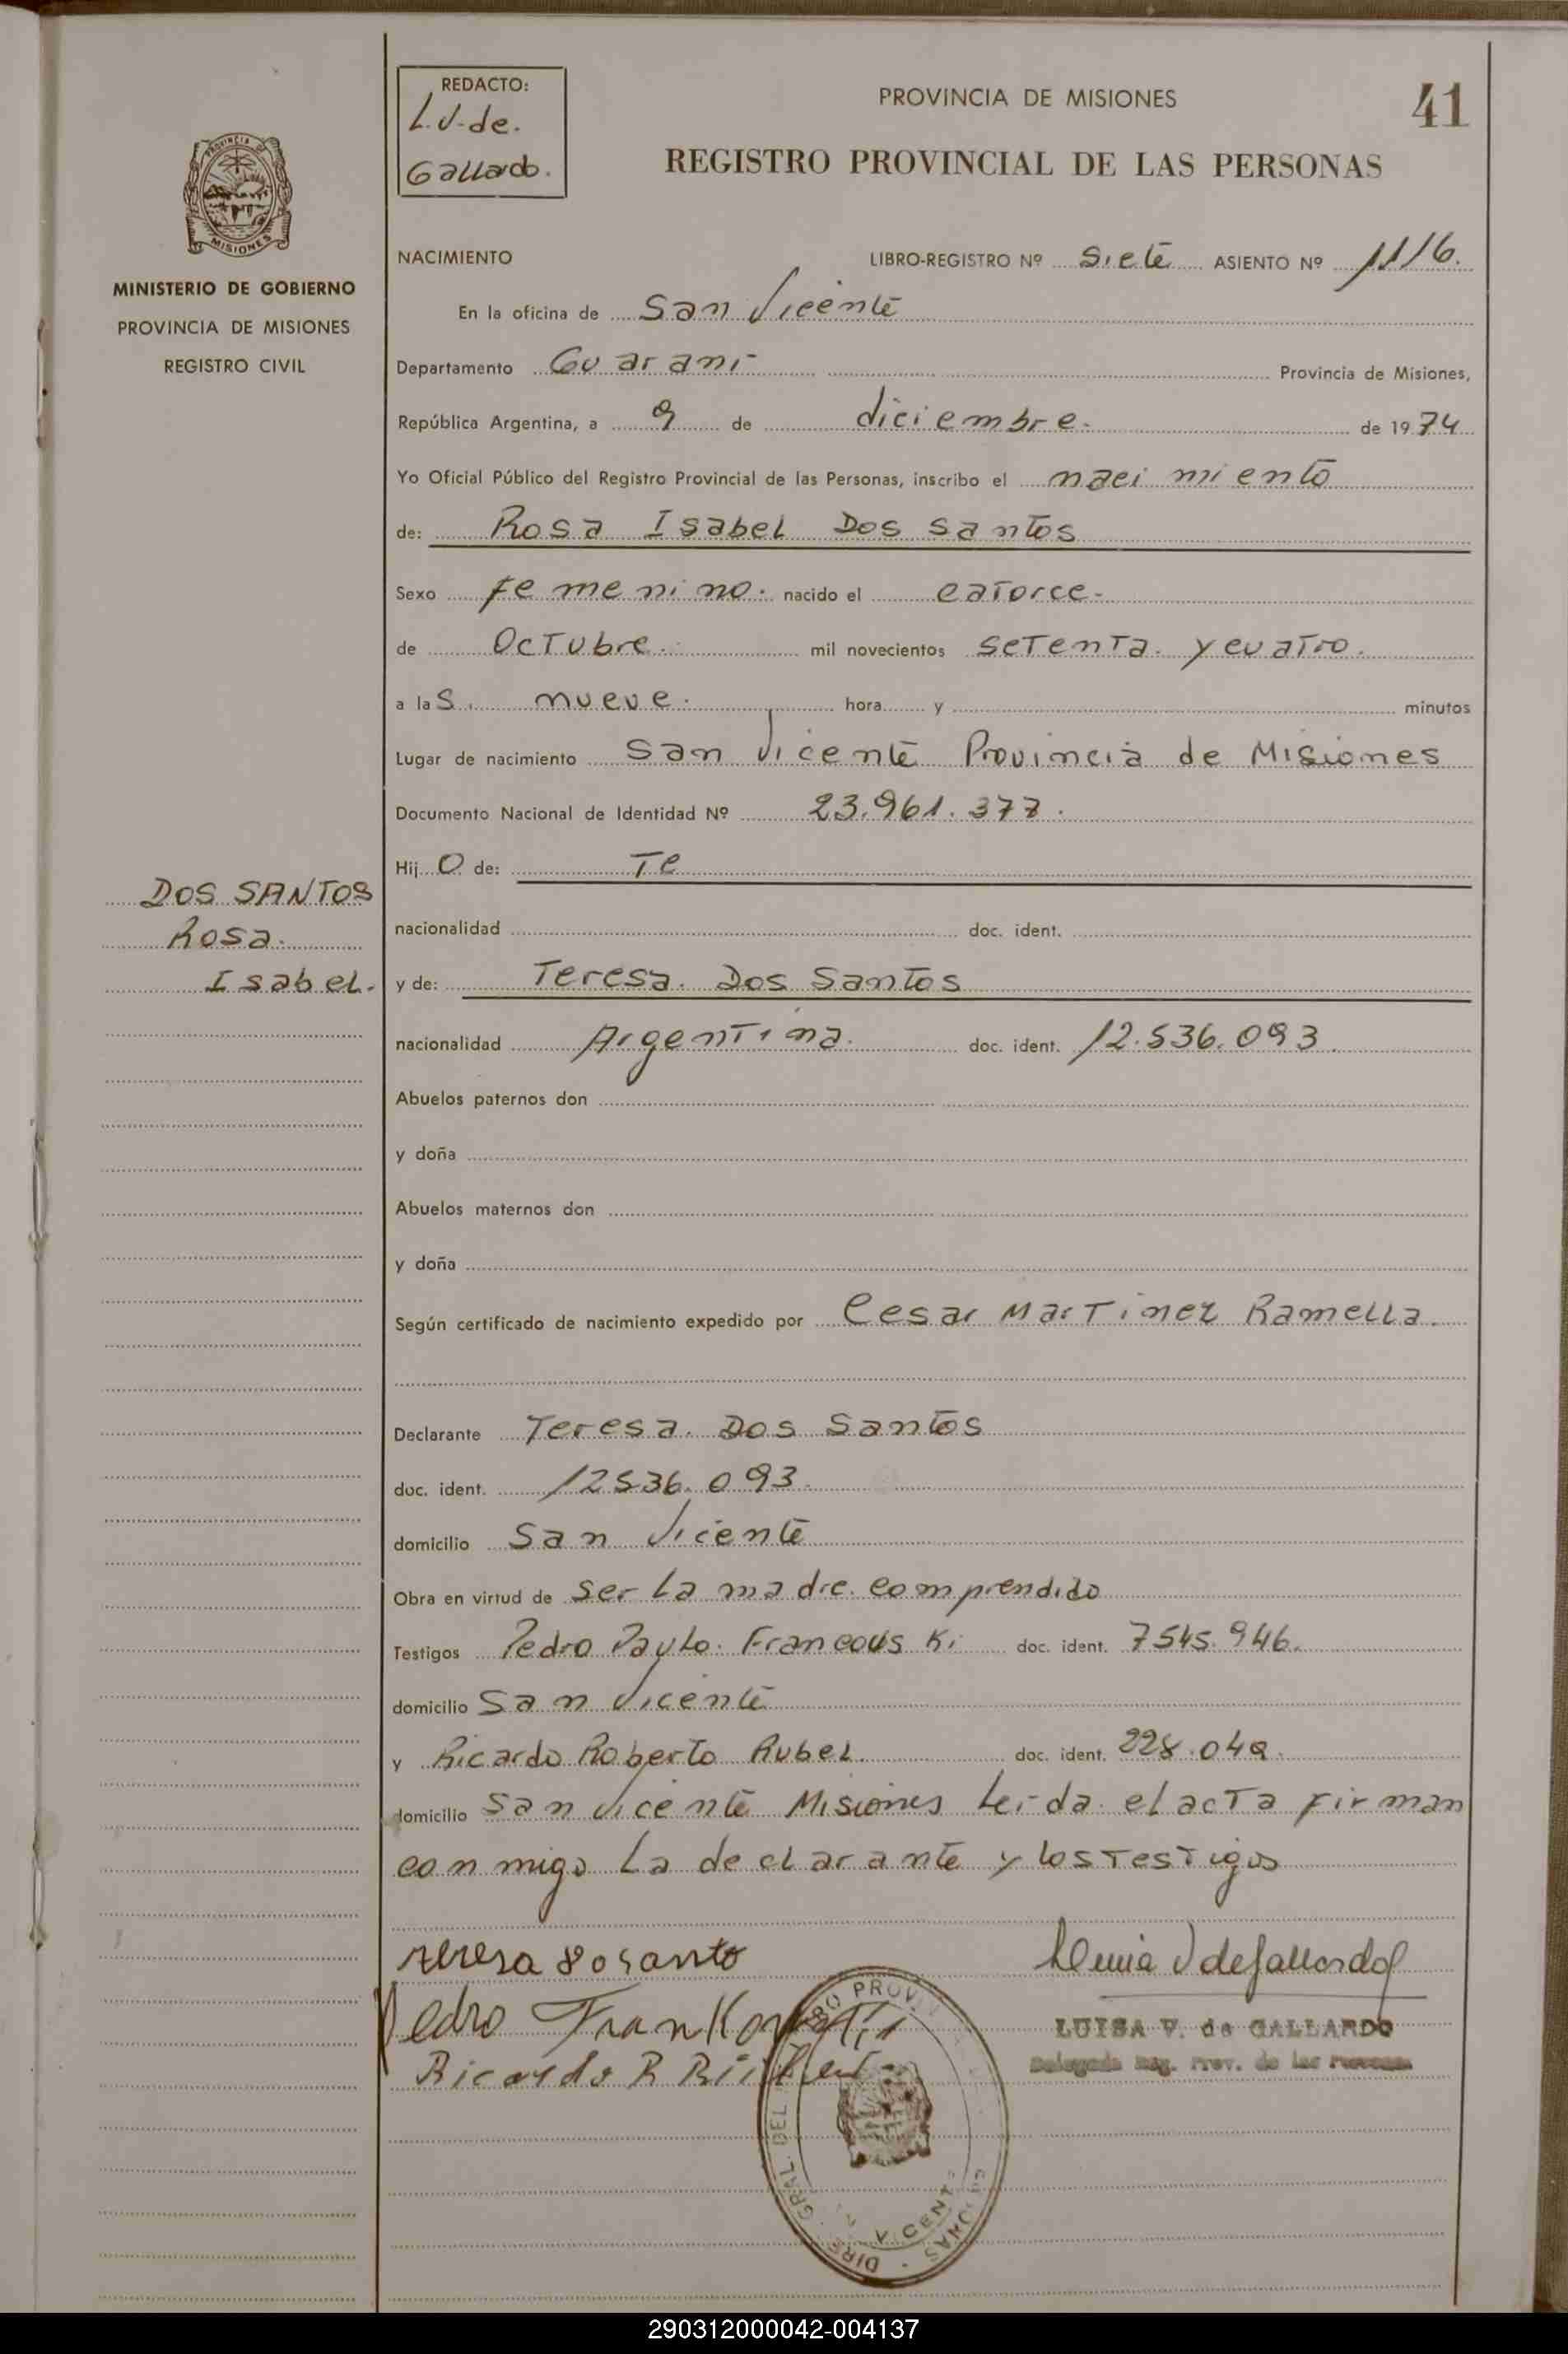 REDACTO:
L.V. de.
Gallardo.
PROVINCIA DE MISIONES
41
REGISTRO PROVINCIAL DE LAS PERSONAS
PROVINCIA DE
MISIONES
MINISTERIO DE GOBIERNO
PROVINCIA DE MISIONES
REGISTRO CIVIL
NACIMIENTO LIBRO-REGISTRO Nº siete ASIENTO Nº 1116.
En la oficina de San Vicente
Departamento Guarani Provincia de Misiones,
República Argentina, a 9 de diciembre. de 1974
Yo Oficial Público del Registro Provincial de las Personas, inscribo el nacimiento
de: Rosa Isabel Dos Santos
Sexo femenino. nacido el catorce.
de Octubre. mil novecientos setenta. y cuatro.
a las. nueve. hora y minutos
Lugar de nacimiento San Vicente Provincia de Misiones
Documento Nacional de Identidad Nº 23.961.377.
Hij O de: Te
nacionalidad doc. ident.
DOS SANTOS
Rosa.
Isabel.
y de: Teresa. Dos Santos
nacionalidad Argentina. doc. ident. 12.536.093.
Abuelos paternos don
y doña
Abuelos maternos don
y doña
Según certificado de nacimiento expedido por Cesar Martinez Ramella.
Declarante Teresa. Dos Santos
doc. ident. 12536.093.
domicilio San Vicente
Obra en virtud de ser la madre. comprendido
Testigos Pedro Paulo. Francouski doc. ident. 7545.946.
domicilio San Vicente
y Ricardo Roberto Rubel doc. ident. 228.049.
domicilio San Vicente Misiones Leida el acta firman
conmigo La declarante y los testigos
teresa dosanto
Pedro
Ricardo R
LUISA V. de GALLARDO
Delegada Reg. Prov. de las Personas
290312000042-004137